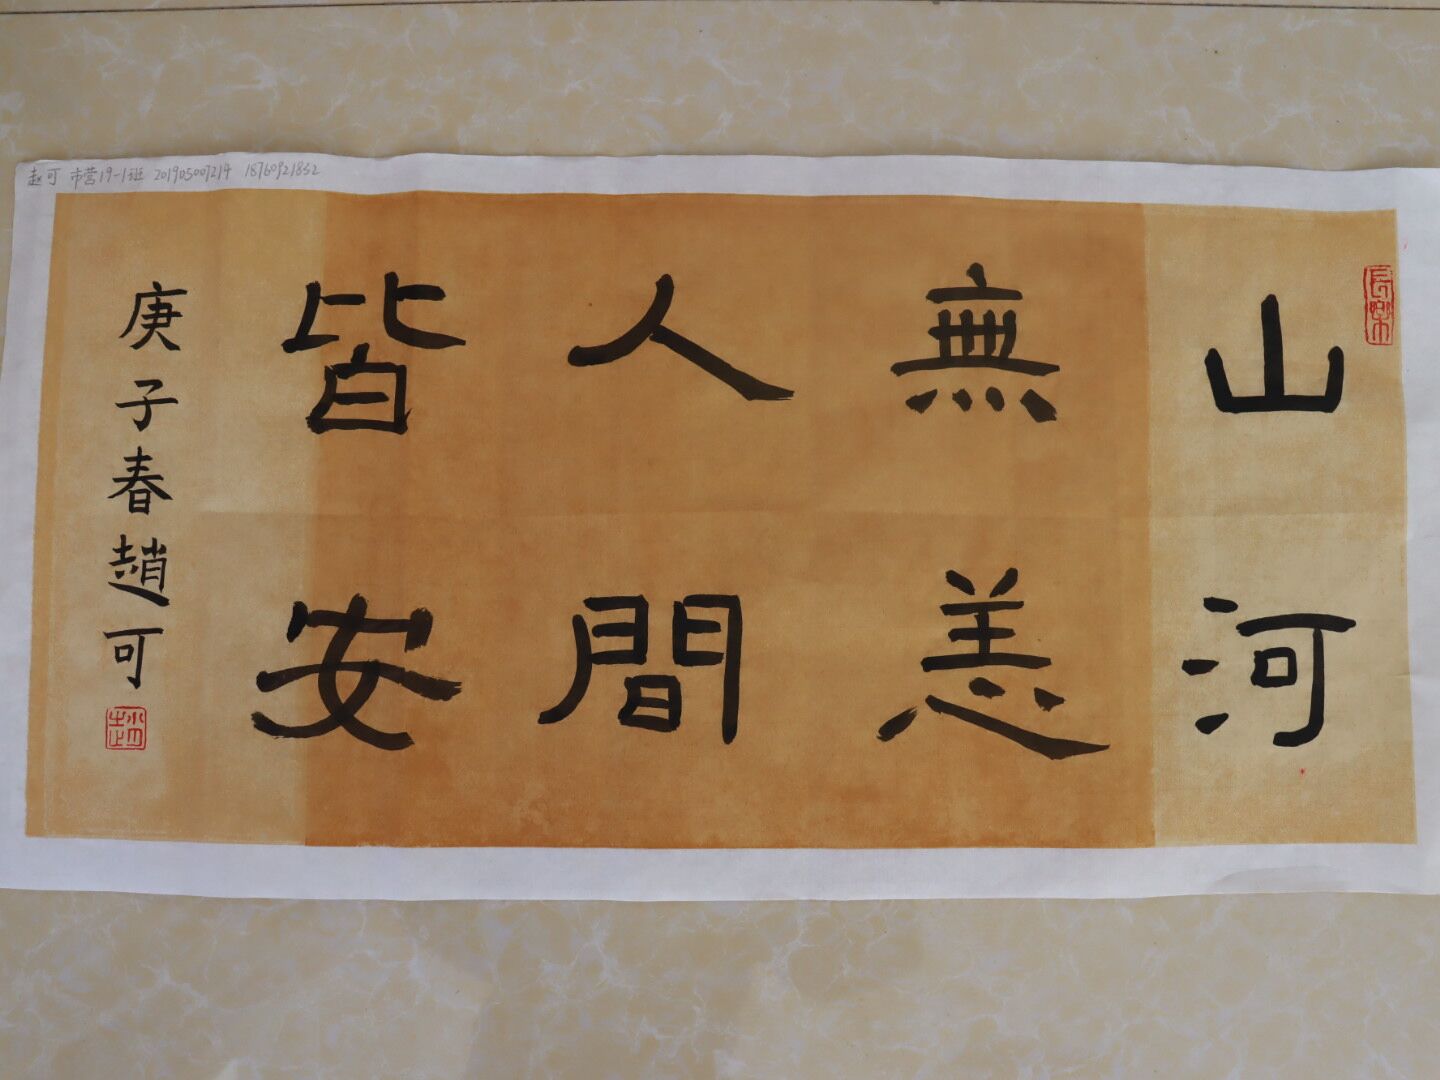 赵可 市营19-1班 201905007214 18760921832
山河
無恙
人間
皆安
庚子春趙可
長樂
趙